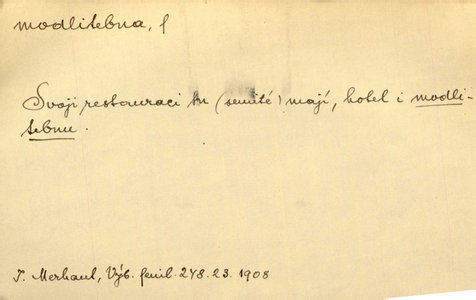 modlitebna, f
Svoji restauraci tu (semité) mají, hotel i modli-
tebnu.
J. Merhaut, Výb. feuil. 248.23. 1908